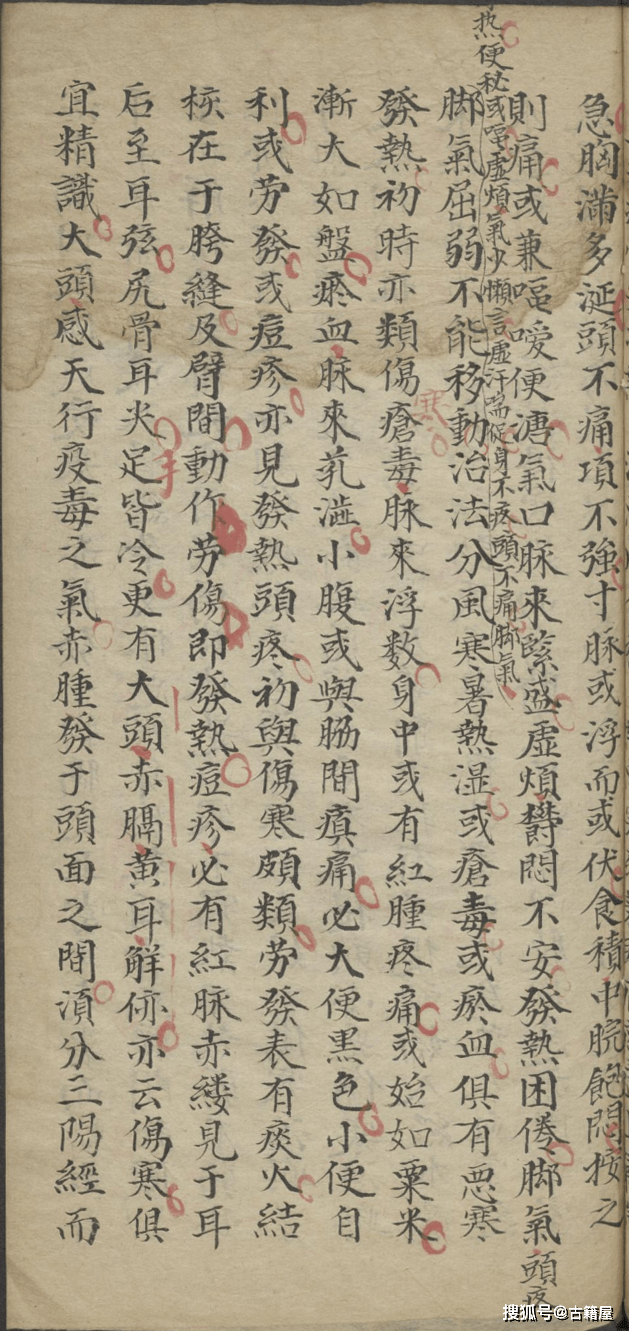 急胸滿多涎頭不痛項不強寸脉或浮而或伏食積中脘飽悶按之
則痛或兼嘔噯便溏氣口脉來緊盛虛煩欝悶不安發熱困倦脚氣頭疼
热便秘或嘔虛煩氣少懶言虛汗喘促身不疼頭不痛脚氣
脚氣屈弱不能移動治法分風寒暑熱湿或瘡毒或瘀血俱有悪寒
發熱初時亦類傷瘡毒脉來浮数身中或有紅腫疼痛或始如粟米
寒
漸大如盤瘀血脉來芤澁小腹或與脇間瘨痛必大便黒色小便自
利或劳發或痘疹亦見發熱頭疼初與傷寒頗類劳發表有痰火結
核在于胯縫及臂間動作劳傷即發熱痘疹必有紅脉赤縷見于耳
后至耳弦尻骨耳尖足皆冷更有大頭赤膈黄耳觧㑊亦云傷寒俱
手
宜精識大頭感天行疫毒之氣赤腫發于頭面之間湏分三陽經而
搜狐号@古籍屋